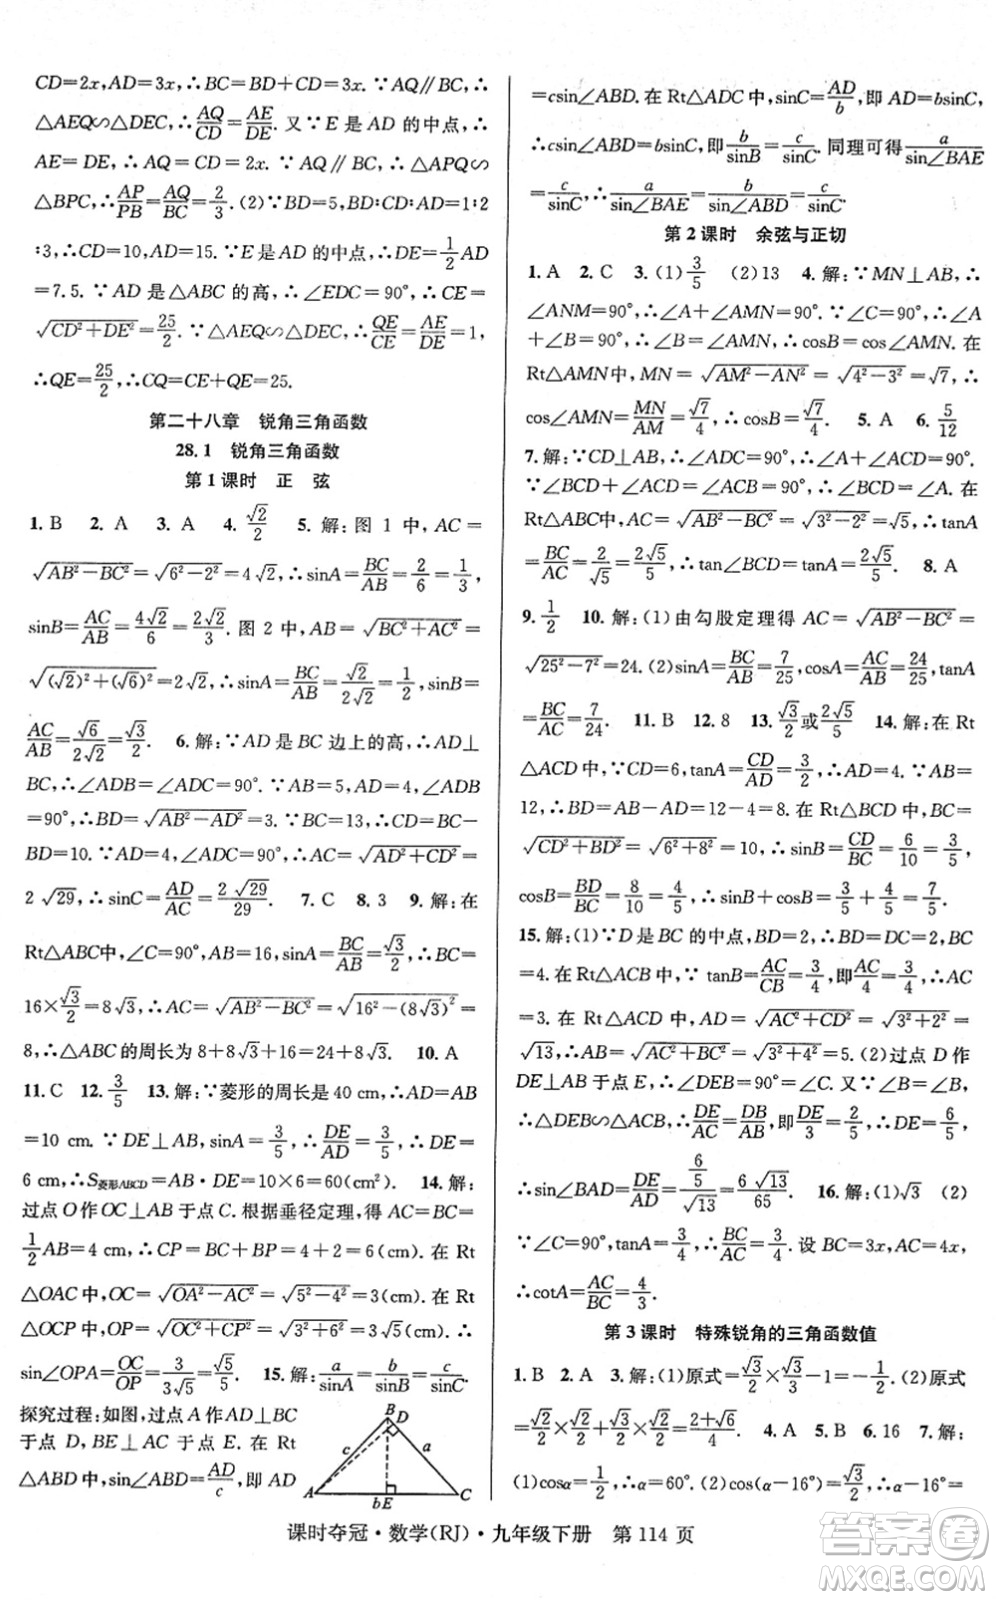 CD=2x,AD=3x,∴BC=BD+CD=3x.∵AQ∥BC,∴
△AEQ∽△DEC,∴AQ/CD=AE/DE.又∵E是AD的中点,∴
AE=DE,∴AQ=CD=2x.∵AQ∥BC,∴△APQ∽
△BPC,∴AP/PB=AQ/BC=2/3.(2)∵BD:CD:AD=1:2
:3,∴CD=10,AD=15.∵E是AD的中点,∴DE=1/2AD
=7.5.∵AD是△ABC的高,∴∠EDC=90°,∴CE=
√(CD²+DE²)=25/2.∵△AEQ∽△DEC,∴QE/CE=AE/DE=1,
∴QE=25/2,∴CQ=CE+QE=25.
第二十八章 锐角三角函数
28.1 锐角三角函数
第1课时 正 弦
1.B 2.A 3.A 4.√2/2 5.解:图1中,AC=
√(AB²-BC²)=√(6²-2²)=4√2,∴sinA=BC/AB=2/6=1/3,
sinB=AC/AB=4√2/6=2√2/3.图2中,AB=√(BC²+AC²)=
√((√2)²+(√6)²)=2√2,∴sinA=BC/AB=√2/2√2=1/2,sinB=
AC/AB=√6/2√2=√3/2. 6.解:∵AD是BC边上的高,∴AD⊥
BC,∴∠ADB=∠ADC=90°.∵AB=5,AD=4,∠ADB
=90°,∴BD=√(AB²-AD²)=3.∵BC=13,∴CD=BC-
BD=10.∵∠ADC=90°,∴AC=√(AD²+CD²)=
2√29,∴sinC=AD/AC=2√29/29. 7.C 8.3 9.解:在
Rt△ABC中,∠C=90°,AB=16,sinA=BC/AB=√3/2,∴BC=
16×√3/2=8√3,∴AC=√(AB²-BC²)=√(16²-(8√3)²)=
8,∴△ABC的周长为8+8√3+16=24+8√3. 10.A
11.C 12.3/5 13.解:∵菱形的周长是40 cm,∴AD=AB
=10 cm.∵DE⊥AB,sinA=3/5,∴DE/AD=3/5,∴DE=
6 cm,∴S菱形ABCD=AB·DE=10×6=60(cm²). 14.解:
过点O作OC⊥AB于点C.根据垂径定理,得AC=BC=
1/2AB=4 cm,∴CP=BC+BP=4+2=6(cm).在Rt
△OAC中,OC=√(OA²-AC²)=√(5²-4²)=3(cm).在Rt
△OCP中,OP=√(OC²+CP²)=√(3²+6²)=3√5(cm),
sin∠OPA=OC/OP=3/3√5=√5/5. 15.解:a/sinA=b/sinB=c/sinC.
探究过程:如图,过点A作AD⊥BC
于点D,BE⊥AC于点E.在Rt
△ABD中,sin∠ABD=AD/c,即AD
B
D
c
a
A
b E
C
=csin∠ABD.在Rt△ADC中,sinC=AD/b,即AD=bsinC,
∴csin∠ABD=bsinC,即b/sinB=c/sinC.同理可得a/sin∠BAE
=c/sinC,∴a/sin∠BAE=b/sin∠ABD=c/sinC.
第2课时 余弦与正切
1.A 2.C 3.(1)3/5 (2)13 4.解:∵MN⊥AB,∴
∠ANM=90°,∴∠A+∠AMN=90°.∵∠C=90°,∴∠A
+∠B=90°,∴∠B=∠AMN,∴cosB=cos∠AMN.在
Rt△AMN中,MN=√(AM²-AN²)=√(4²-3²)=√7,∴
cos∠AMN=MN/AM=√7/4,∴cosB=√7/4. 5.A 6.5/12
7.解:∵CD⊥AB,∴∠ADC=90°,∴∠A+∠ACD=90°.
∵∠BCD+∠ACD=∠ACB=90°,∴∠BCD=∠A.在
Rt△ABC中,AC=√(AB²-BC²)=√(3²-2²)=√5,∴tanA
=BC/AC=2/√5=2√5/5,∴tan∠BCD=tanA=2√5/5. 8.A
9.1/2 10.解:(1)由勾股定理得AC=√(AB²-BC²)=
√(25²-7²)=24.(2)sinA=BC/AB=7/25,cosA=AC/AB=24/25,tanA
=BC/AC=7/24. 11.B 12.8 13.√3/2或2√5/5 14.解:在Rt
△ACD中,∵CD=6,tanA=CD/AD=3/2,∴AD=4.∵AB=
12,∴BD=AB-AD=12-4=8.在Rt△BCD中,BC=
√(CD²+BD²)=√(6²+8²)=10,∴sinB=CD/BC=6/10=3/5,
cosB=BD/BC=8/10=4/5,∴sinB+cosB=3/5+4/5=7/5.
15.解:(1)∵D是BC的中点,BD=2,∴BD=DC=2,BC
=4.在Rt△ACB中,∵tanB=AC/CB=3/4,即AC/4=3/4,∴AC
=3.在Rt△ACD中,AD=√(AC²+CD²)=√(3²+2²)=
√13,∴AB=√(AC²+BC²)=√(3²+4²)=5.(2)过点D作
DE⊥AB于点E,∴∠DEB=90°=∠C.又∵∠B=∠B,
∴△DEB∽△ACB,∴DE/AC=DB/AB,即DE/3=2/5,∴DE=6/5,
∴sin∠BAD=DE/AD=(6/5)/√13=6√13/65. 16.解:(1)√3 (2)
∵∠C=90°,tanA=3/4,∴BC/AC=3/4.∴设BC=3x,AC=4x,
∴cotA=AC/BC=4/3.
第3课时 特殊锐角的三角函数值
1.B 2.A 3.解:(1)原式=√3/2×√3/3-1=-1/2.(2)原式
=√2/2×√2/2+√3/2×√2/2=2+√6/4. 4.A 5.B 6.16 7.解:
(1)cosα=1/2,∴α=60°.(2)cos(α-16°)=√3/2,∴α-16°=
课时夺冠·数学(RJ)·九年级下册 第114页
答案圈
MXQE.COM